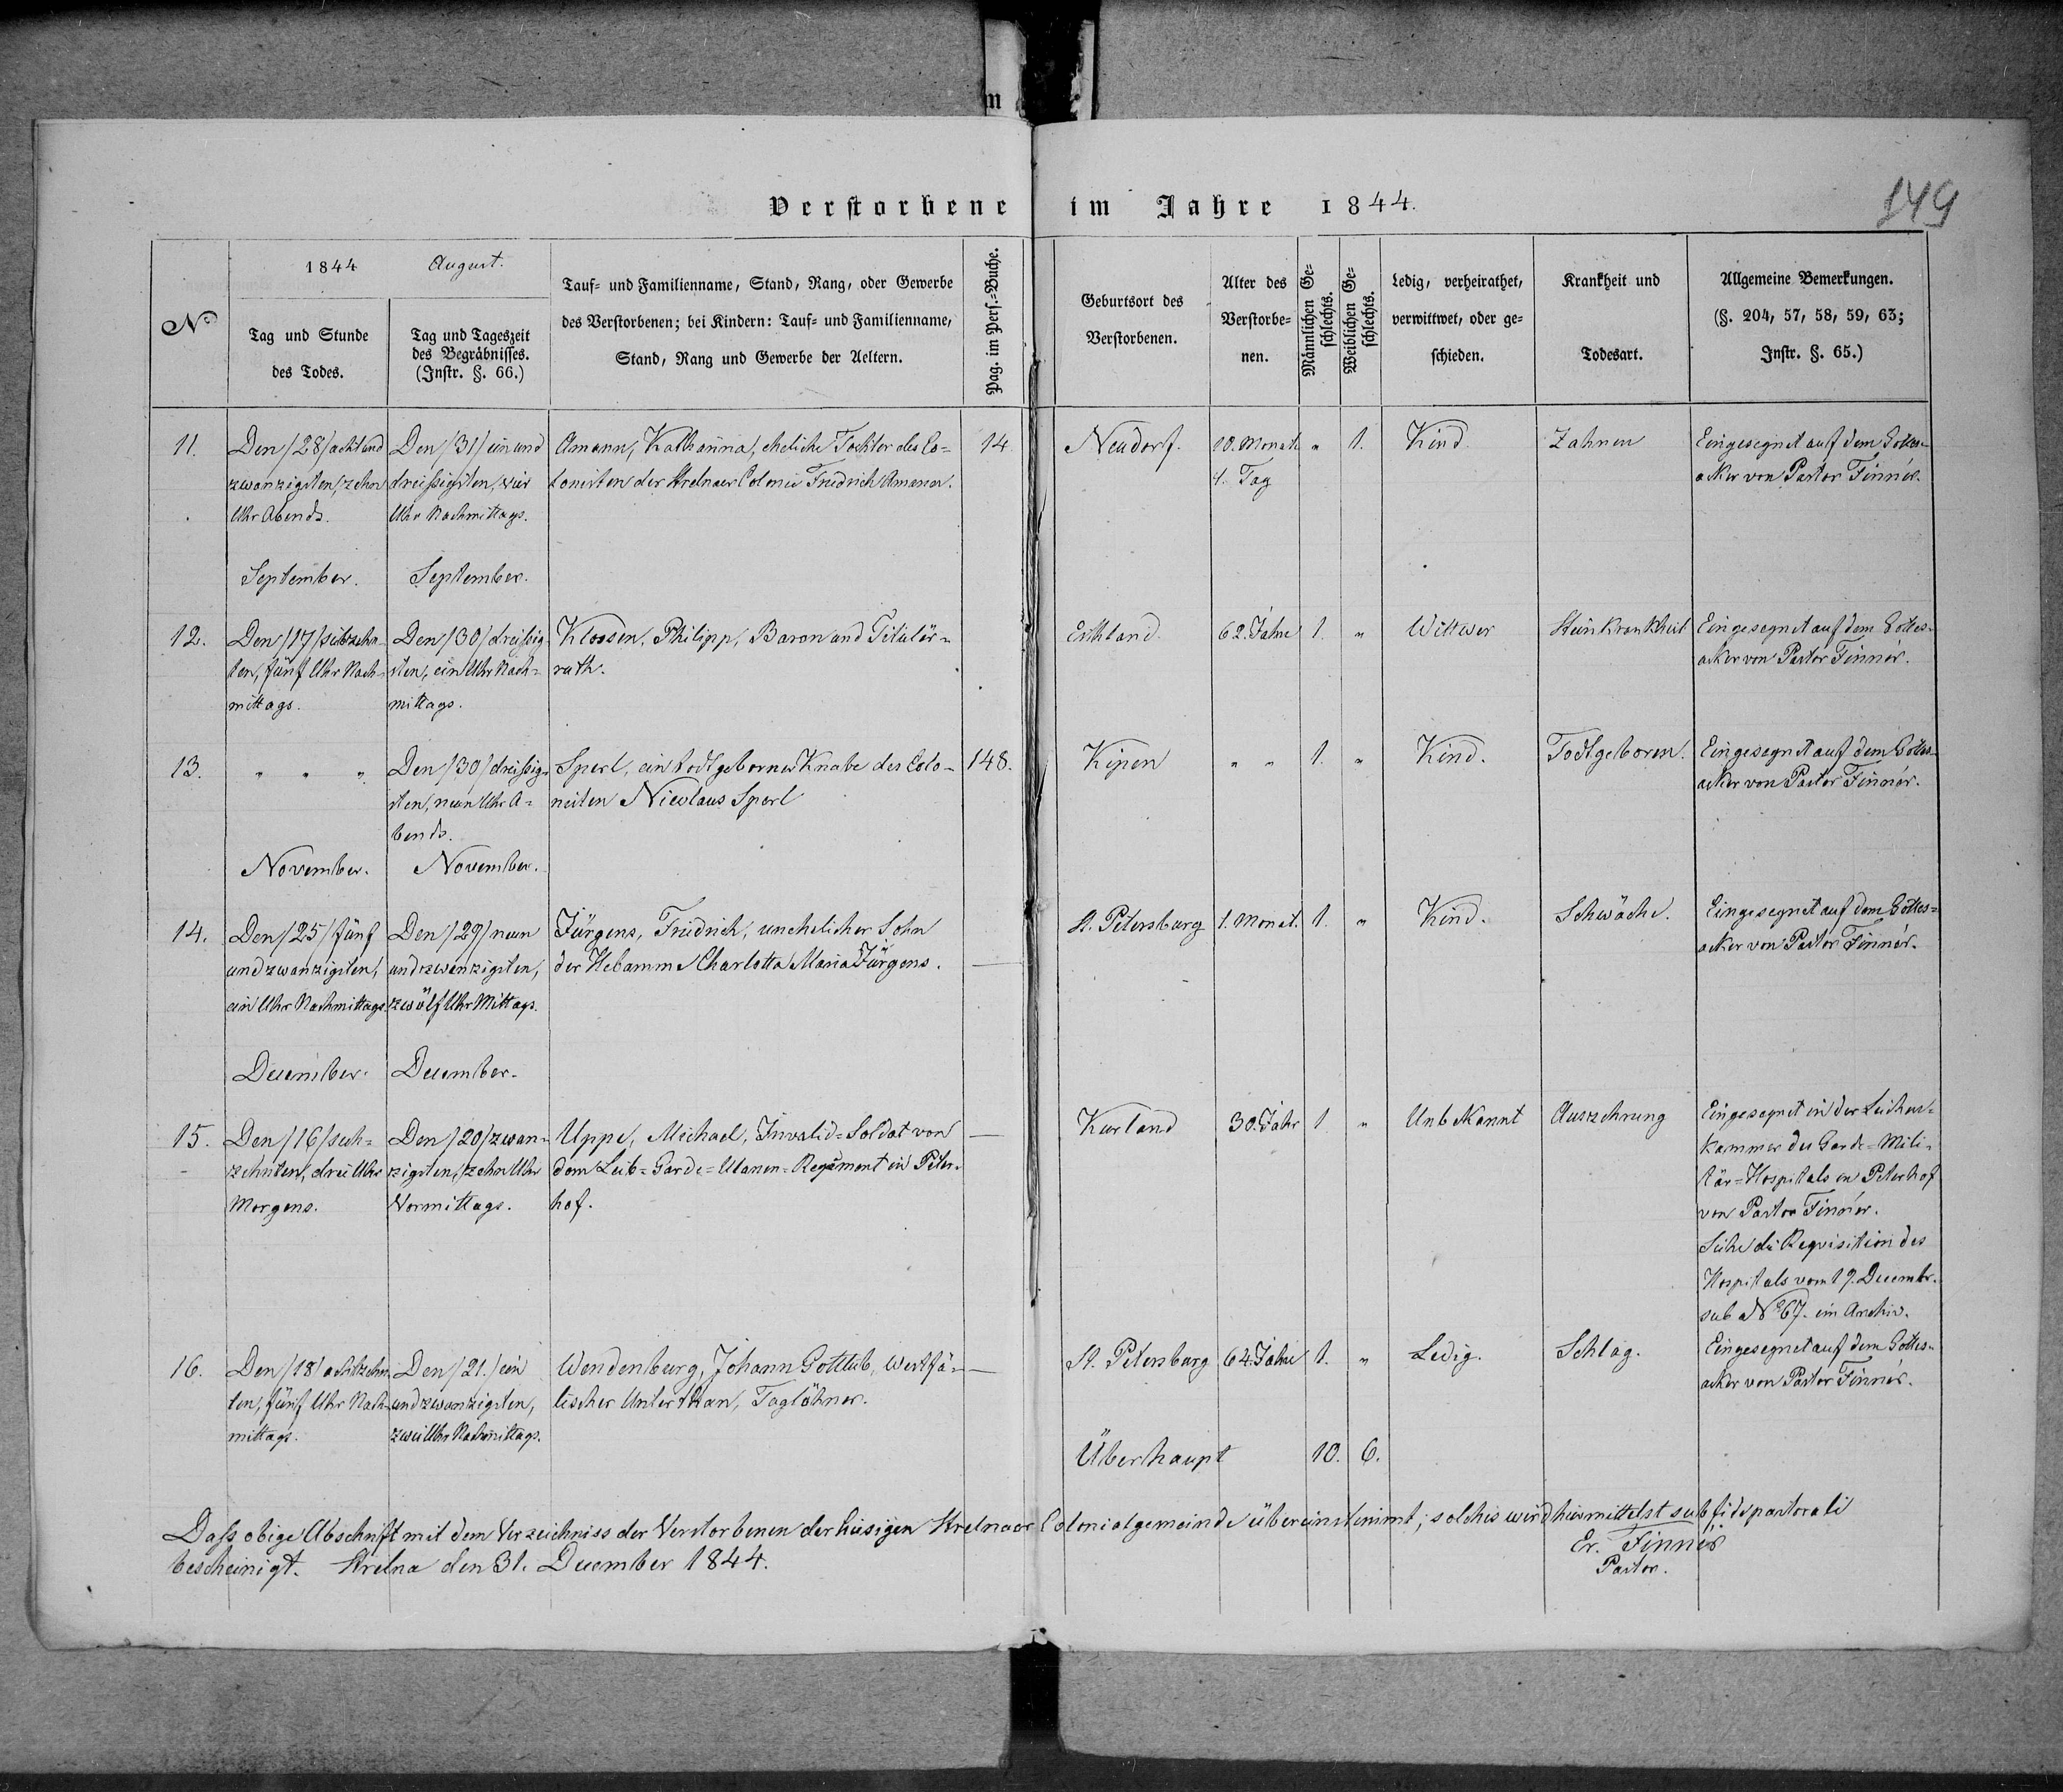 m
Verstorbene im Jahre 1844.
149
No
1844 August.
Tag und Stunde
des Todes.
Tag und Tageszeit
des Begräbnisses.
(Instr. §. 66.)
Tauf- und Familienname, Stand, Rang, oder Gewerbe
des Verstorbenen; bei Kindern: Tauf- und Familienname,
Stand, Rang und Gewerbe der Aeltern.
Pag. im Pers.-Buche.
Geburtsort des
Verstorbenen.
Alter des
Verstorbe-
nen.
Männlichen Ge-
schlechts.
Weiblichen Ge-
schlechts.
Ledig, verheirathet,
verwittwet, oder ge-
schieden.
Krankheit und
Todesart.
Allgemeine Bemerkungen.
(§. 204, 57, 58, 59, 63;
Instr. §. 65.)
11.
Den /28/ acht und
zwanzigsten, zehn
Uhr Abends.
Den /31/ ein und
dreissigsten, vier
Uhr Nachmittags.
Amann, Katharina, eheliche Tochter des Co=
lonisten der Strelnaer Colonie Friedrich Amann.
14
Neudorf.
10. Monat
1. Tag
"
1.
Kind
Zahnen
Eingesegnet auf dem Gottes=
acker von Pastor Finnér.
September. September.
12.
Den /17/ siebzehn=
ten, fünf Uhr Nach=
mittags.
Den /30/ dreissig=
sten, ein Uhr Nach=
mittags.
Kloosen, Philipp, Baron und Titulär=
rath.
Esthland.
62. Jahre
1.
"
Wittwer
Steinkrankheit
Eingesegnet auf dem Gottes=
acker von Pastor Finnér.
13.
" " "
Den /30/ dreissig=
sten, neun Uhr A=
bends.
Sperl, ein todtgeborner Knabe des Colo=
nisten Nicolaus Sperl
148.
Kipen
" "
1.
"
Kind.
Todtgeboren.
Eingesegnet auf dem Gottes=
acker von Pastor Finnér.
November. November.
14.
Den /25/ fünf
und zwanzigsten,
ein Uhr Nachmittags.
Den /29/ neun
und zwanzigsten,
zwölf Uhr Mittags.
Jürgens, Friedrich, unehelicher Sohn
der Hebamme Charlotta Maria Jürgens.
—
St. Petersburg
1. Monat.
1.
"
Kind.
Schwäche.
Eingesegnet auf dem Gottes=
acker von Pastor Finnér.
December. December.
15.
Den /16/ sech=
zehnten, drei Uhr
Morgens.
Den /20/ zwan=
zigsten, zehn Uhr
Vormittags.
Uppe, Michael, Invalid=Soldat von
dem Leib=Garde=Ulanen=Regiment in Peter=
hof.
—
Kurland
30. Jahr
1.
"
Unbekannt
Auszehrung
Eingesegnet in der Leichen=
kammer des Garde=Mili=
tär=Hospitals in Peterhof
von Pastor Finnér.
Siehe die Requisition des
Hospitals vom 19. Decembr.
sub No 67. im Archiv.
16.
Den /18/ achtzehn=
ten, fünf Uhr Nach=
mittags.
Den /21./ ein
und zwanzigsten,
zwei Uhr Nachmittags.
Wendenburg, Johann Gottlieb, Westfä=
lischer Unterthan, Taglöhner.
—
St. Petersburg
64. Jahre
1.
"
Ledig.
Schlag.
Eingesegnet auf dem Gottes=
acker von Pastor Finnér.
Überhaupt 10. 6.
Dass obige Abschrift mit dem Verzeichniss der Verstorbenen der hiesigen Strelnaer Colonialgemeinde übereinstimmt, solches wird hiermittelst sub fide pastorali
bescheinigt. Strelna den 31. December 1844.
Er. Finnér
Pastor.